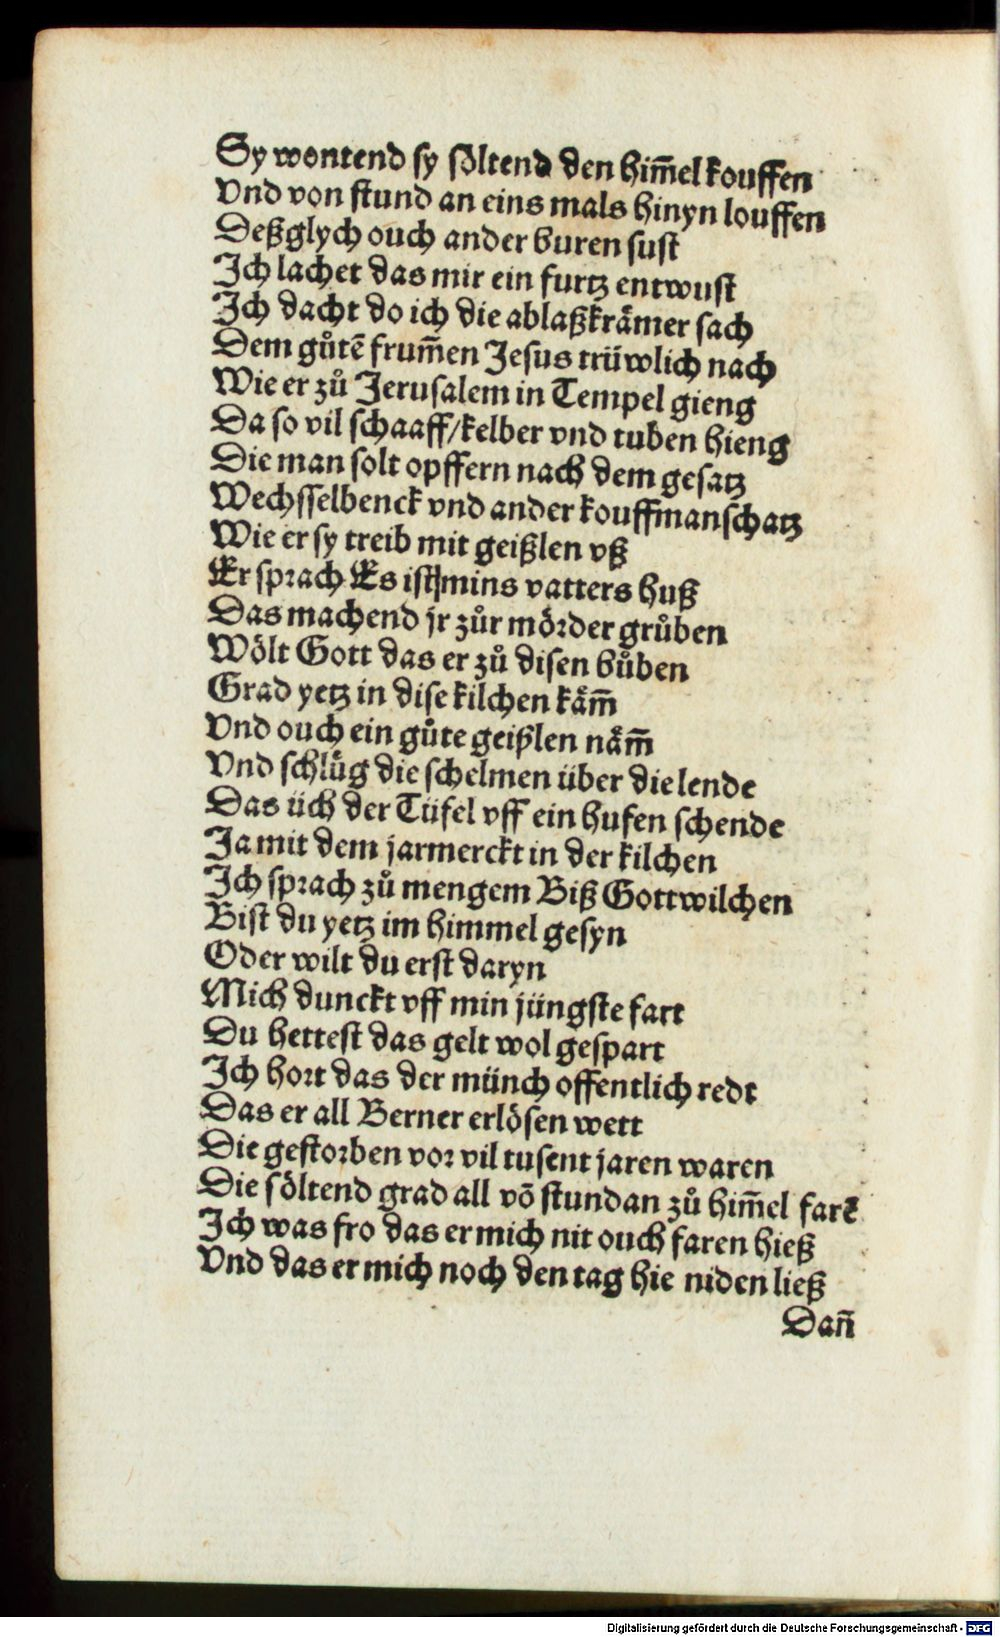 Sy wontend sy söltend den him̄el kouffen
Vnd von stund an eins mals hinyn louffen
Deßglych ouch ander buren sust
Ich lachet das mir ein furtz entwust
Ich dacht do ich die ablaßkrämer sach
Dem gůtē frum̄en Jesus trüwlich nach
Wie er zů Jerusalem in Tempel gieng
Da so vil schaaff/kelber vnd tuben hieng
Die man solt opffern nach dem gesatz
Wechsselbenck vnd ander kouffmanschatz
Wie er sy treib mit geißlen vß
Er sprach Es ist mins vatters huß
Das machend jr zůr mörder grůben
Wölt Gott das er zů disen bůben
Grad yetz in dise kilchen käm̄
Vnd ouch ein gůte geißlen näm̄
Vnd schlüg die schelmen über die lende
Das üch der Tüfel vff ein hufen schende
Ja mit dem jarmerckt in der kilchen
Ich sprach zů mengem Biß Gottwilchen
Bist du yetz im himmel gesyn
Oder wilt du erst daryn
Mich dunckt vff min jüngste fart
Du hettest das gelt wol gespart
Ich hort das der münch offentlich redt
Das er all Berner erlösen wett
Die gestorben vor vil tusent jaren waren
Die söltend grad all vō stund an zů him̄el farē
Ich was fro das er mich nit ouch faren hieß
Vnd das er mich noch den tag hie niden ließ
Dan̄
Digitalisierung gefördert durch die Deutsche Forschungsgemeinschaft - DFG